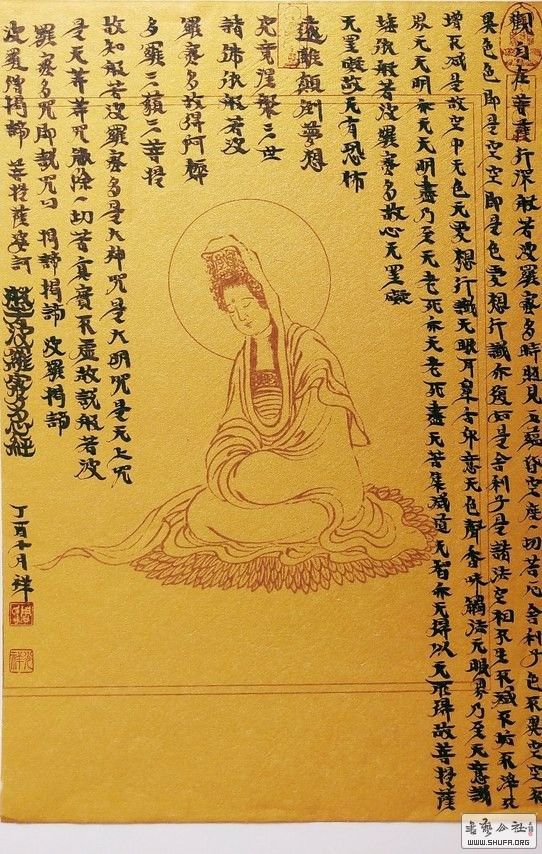 觀自在菩薩行深般若波羅蜜多時照見五蘊皆空度一切苦厄舍利子色不異空空不
異色色即是空空即是色受想行識亦復如是舍利子是諸法空相不生不滅不垢不淨不
增不減是故空中无色无受想行識无眼耳鼻舌身意无色聲香味觸法无眼界乃至无意識
界无无明亦无无明盡乃至无老死亦无老死盡无苦集滅道无智亦无得以无所得故菩提薩
埵依般若波羅蜜多故心无罣礙
无罣礙故无有恐怖
遠離顛倒夢想
究竟涅槃三世
諸佛依般若波
羅蜜多故得阿耨
多羅三藐三菩提
故知般若波羅蜜多是大神咒是大明咒是无上咒
是无等等咒能除一切苦真實不虛故說般若波
羅蜜多咒即說咒曰 揭諦揭諦 波羅揭諦
波羅僧揭諦 菩提薩婆訶 般若波羅蜜多心經
丁酉十月 祥
書藝公社
WWW.SHUFA.ORG